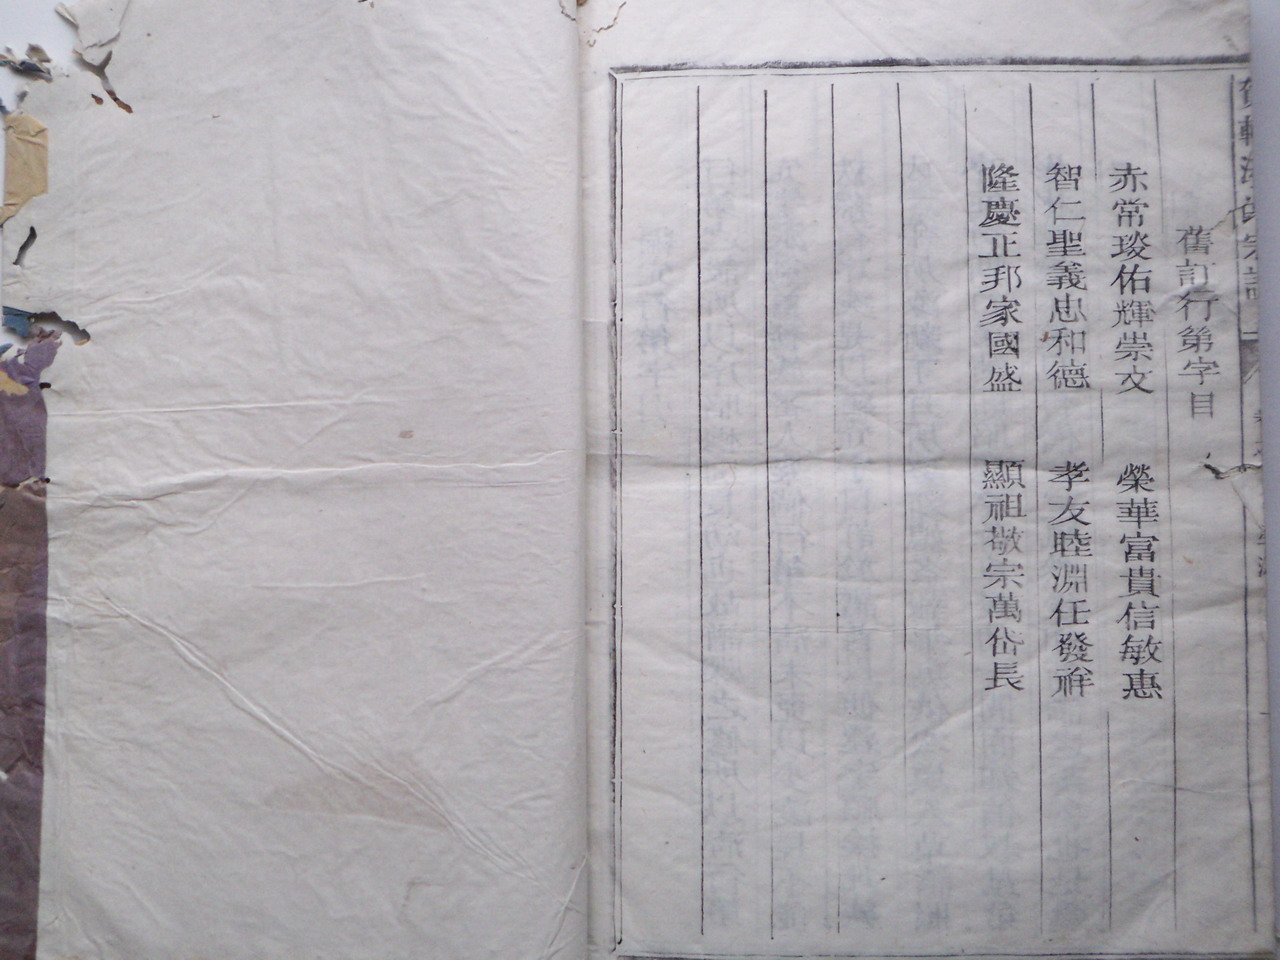 舊訂行第字目
赤常琰佑輝崇文　榮華富貴信敏惠
智仁聖義忠和德　孝友睦淵任發祥
隆慶正邦家國盛　顯祖敬宗萬岱長